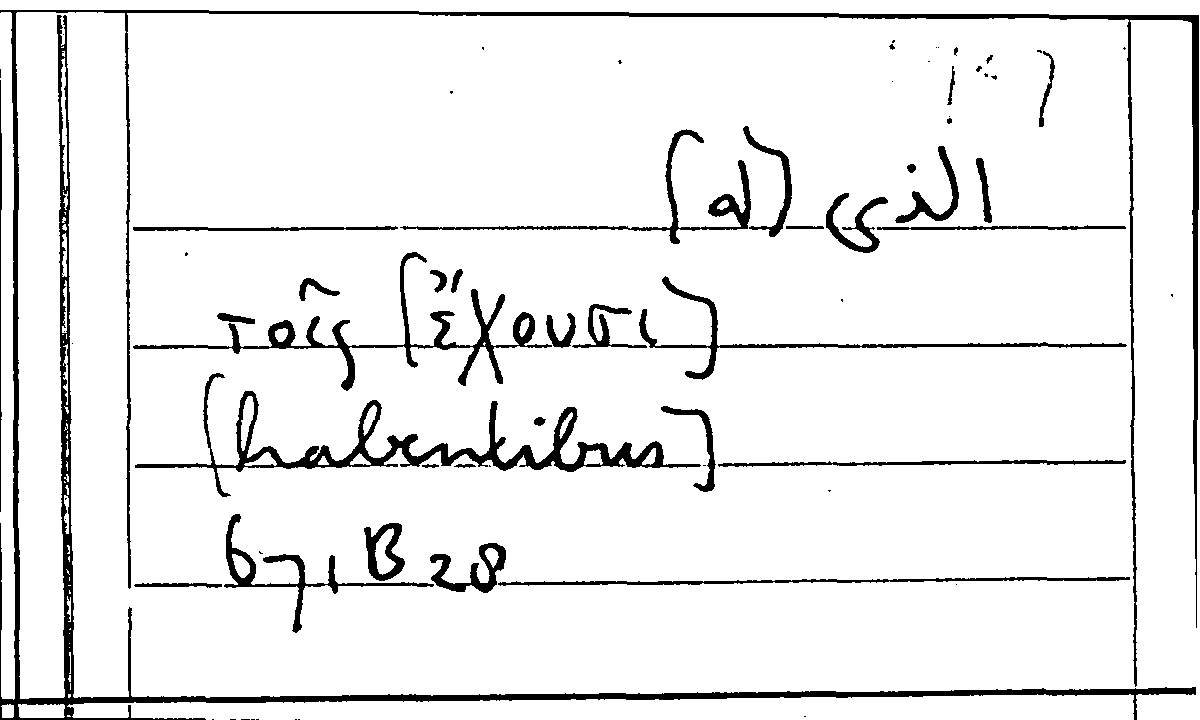 التي (له)
τοῖς [ἔχουσι]
[habentibus]
671 B 28